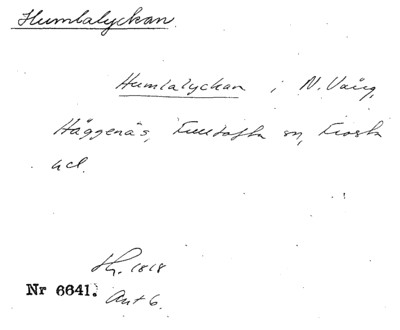 Humlalyckan.
Humlalyckan i N. Vång,
Häggenäs, Fulltofta sn, Frosta
hd.
Sk. 1818
Nr 6641. Akt 6.